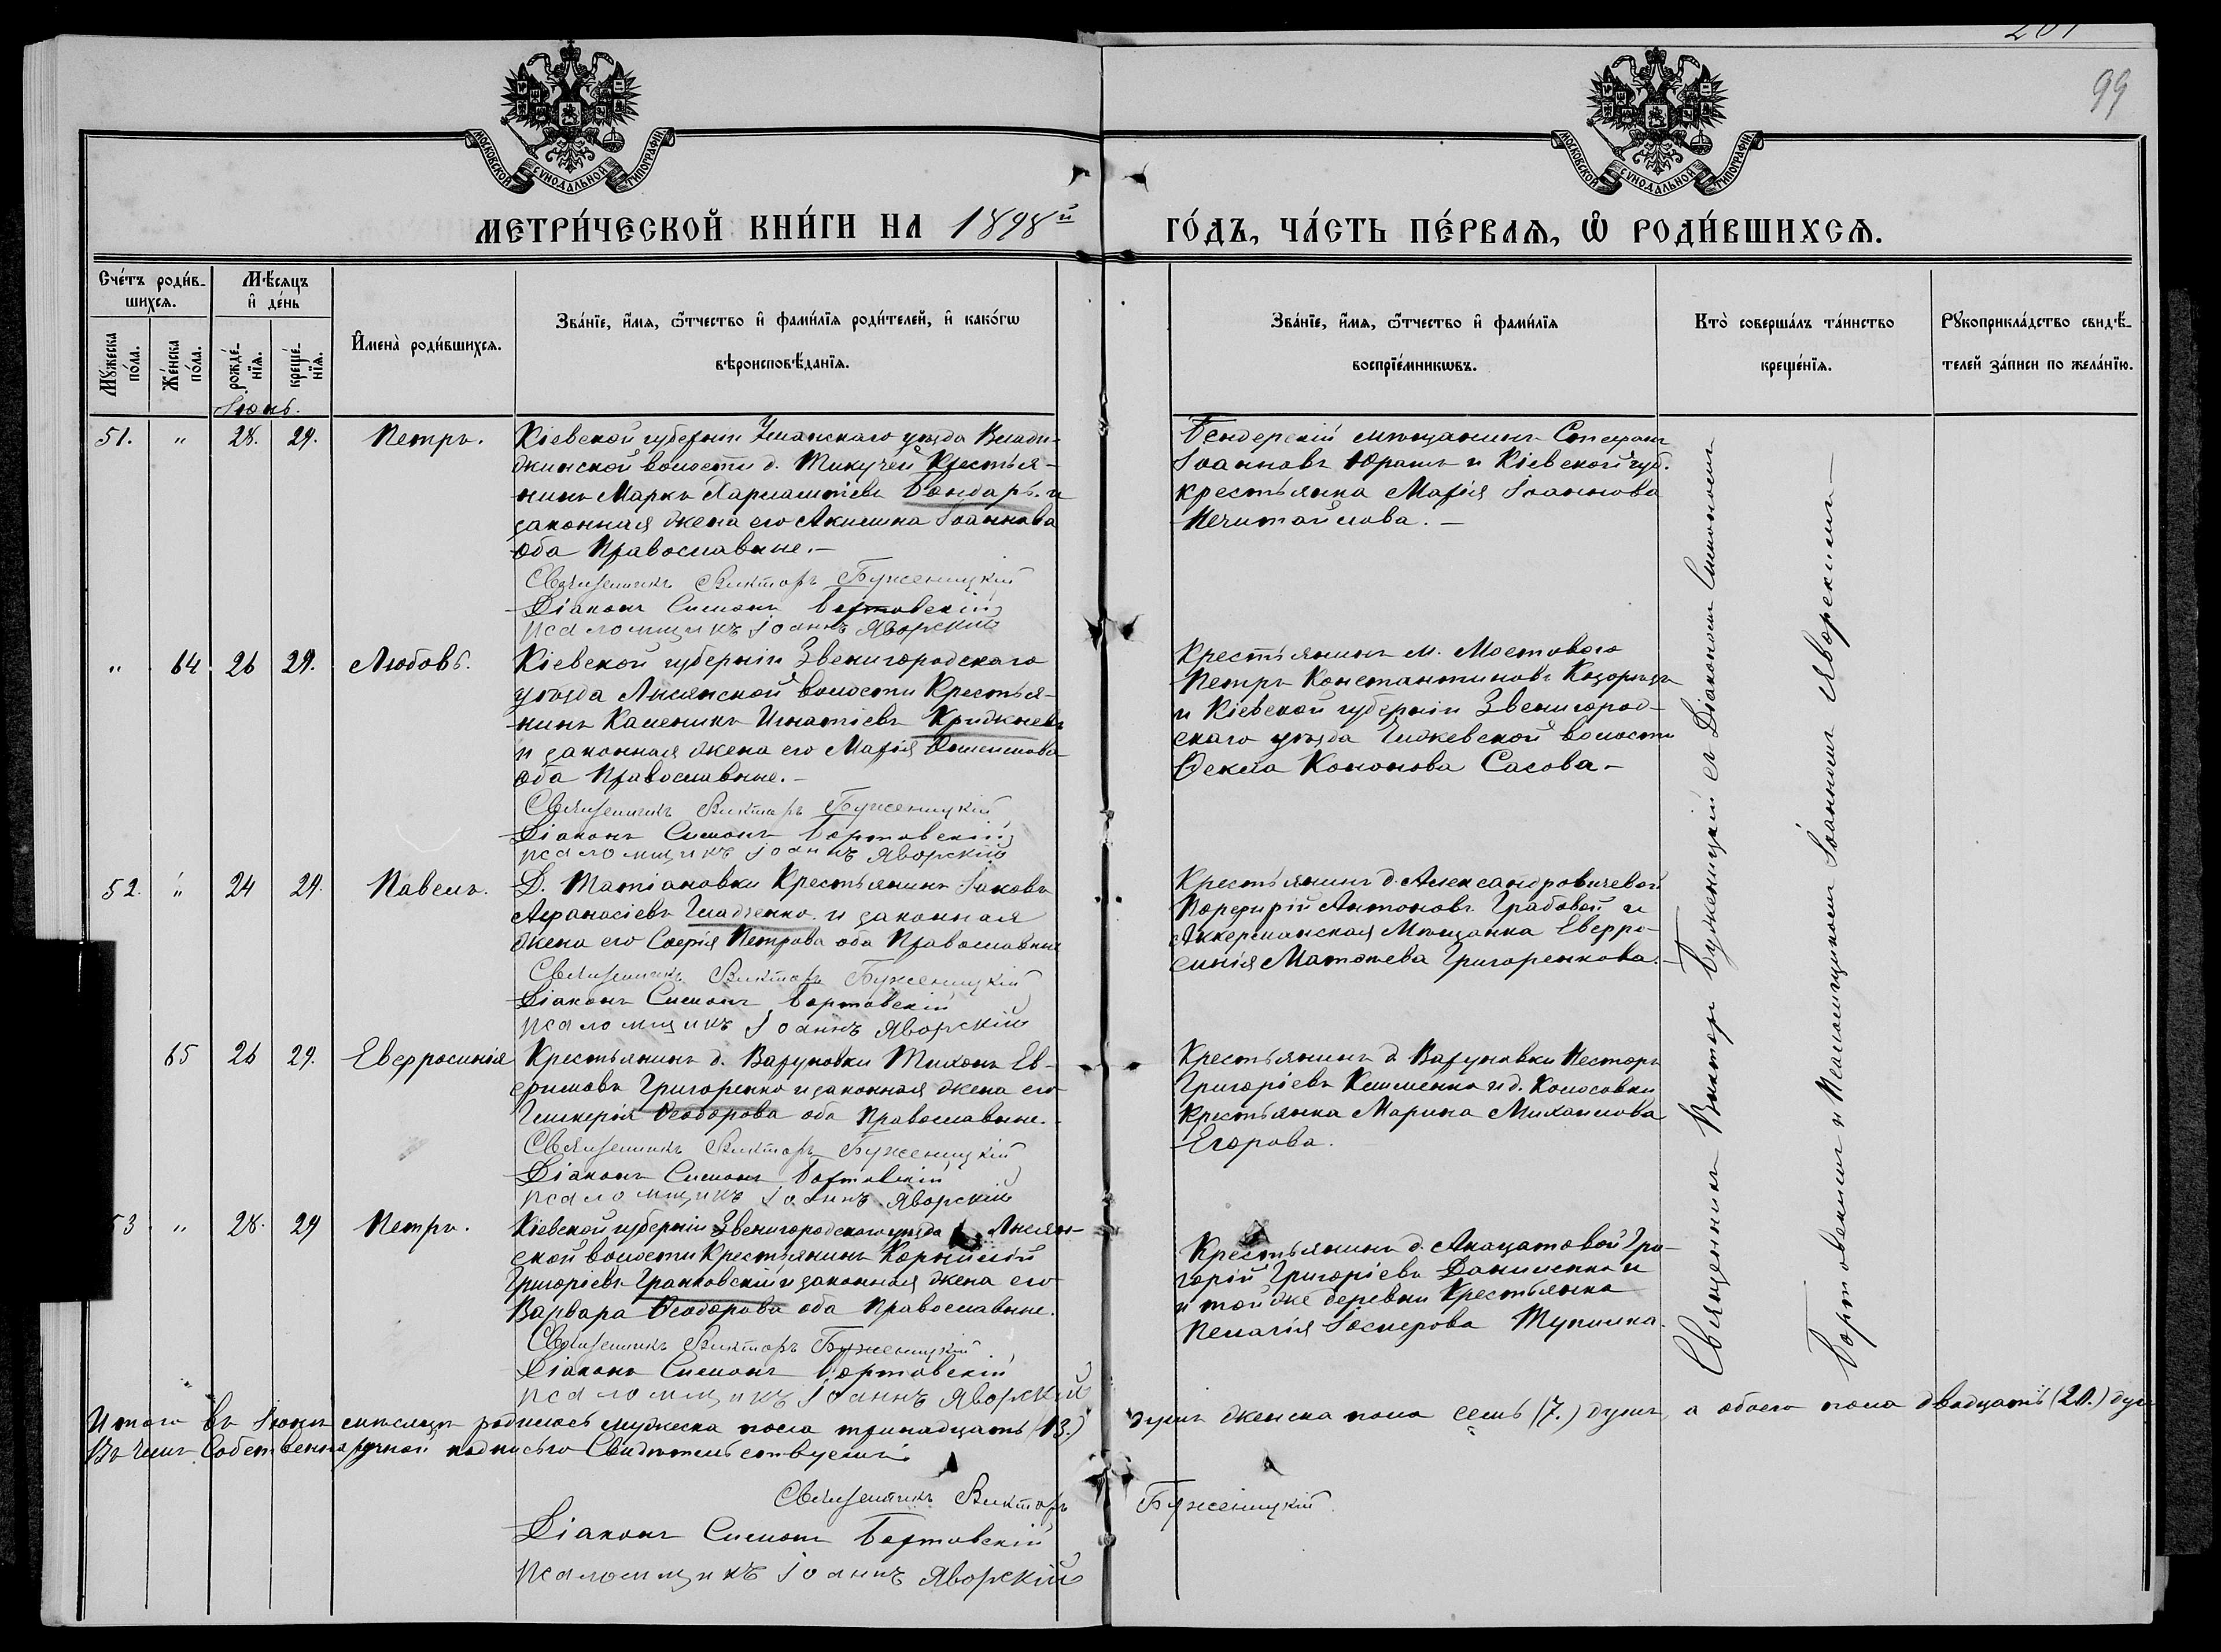 99
МОСКОВСКОЙ СѴНОДАЛЬНОЙ ТИПОГРАФІИ
МОСКОВСКОЙ СѴНОДАЛЬНОЙ ТИПОГРАФІИ
МЕТРИ́ЧЕСКОЙ КНИ́ГИ НА 1898й ГО́ДЪ, ЧА́СТЬ ПЕ́РВАѦ, Ѽ РОДИ́ВШИХСѦ.
Сче́тъ роди́в-
шихсѧ.
Мꙋ́жеска
по́ла.
Же́нска
по́ла.
Мѣ́сѧцъ
и҆ де́нь
рожде́-
нїѧ.
креще́-
нїѧ.
И҆мена̀ роди́вшихсѧ.
Зва́нїе, и҆́мѧ, ѻ҆́тчество и҆ фами́лїѧ роди́телей, и҆ како́гѡ
вѣроисповѣ́данїѧ.
Зва́нїе, и҆́мѧ, ѻ҆́тчество и҆ фами́лїѧ
воспрїе́мникѡвъ.
Кто̀ соверша́лъ та́инство
креще́нїѧ.
Рꙋкоприкла́дство свидѣ́-
телей за́писи по жела́нїю.
Іюнь.
51. " 28. 29. Петръ.
Кіевской губерніи Уманскаго уѣзда
джинской волости д. Текучей Крестья-
нинъ Маркъ Харлампіевъ Бондарь и
законная жена его Акилина Іоаннова
оба Православные.—
Священникъ Викторъ Буженицкій
Діаконъ Симонъ Бортовскій
псаломщикъ Іоаннъ Яворскій
Бендерскій мѣщанинъ Стефанъ
Іоанновъ Юрашъ и Кіевской губ.
крестьянка Марія Іоаннова
Нечитайлова.—
" 64 26 29. Любовь.
Кіевской губерніи Звенигородскаго
уѣзда Лисянской волости Крестья-
нинъ Каленикъ Игнатіевъ
и законная жена его Марія
оба Православные.—
Священникъ Викторъ Буженицкій
Діаконъ Симонъ Бортовскій
псаломщикъ Іоаннъ Яворскій
Крестьянинъ м. Мостового
Петръ Константиновъ
и Кіевской губерніи Звенигород-
скаго уѣзда волости
Ѳекла Кононова Сасова—
52. " 24 29. Павелъ.
Д. Татіановки Крестьянинъ Іаковъ
Аѳанасіевъ Гладченко и законная
жена его Софія Петрова оба Православные
Священникъ Викторъ Буженицкій
Діаконъ Симонъ Бортовскій
псаломщикъ Іоаннъ Яворскій
Крестьянинъ д. Александровичевой
Порфирій Антоновъ Грабовой и
Аккерманская Мѣщанка Евфро-
синія Матѳеева Григоренкова.—
65 26 29. Евфросинія
Крестьянинъ д. Варуновки Тихонъ Ев-
фимовъ Григоренко и законная жена его
Гликерія Ѳеодорова оба Православные.
Священникъ Викторъ Буженицкій
Діаконъ Симонъ Бортовскій
псаломщикъ Іоаннъ Яворскій
Крестьянинъ д. Варуновки Несторъ
Григоріевъ Клименко и д. Колосовки
Крестьянка Марина Михаилова
Егорова.
53 " 28. 29 Петръ.
Кіевской губерніи Звенигородскаго уѣзда Лисян-
ской волости Крестьянинъ Корнилій
Григоріевъ Гранковскій и законная жена его
Варвара Ѳеодорова оба Православные.
Священникъ Викторъ Буженицкій
Діаконъ Симонъ Бортовскій
псаломщикъ Іоаннъ Яворскій
Крестьянинъ д. Акацатовой Гри-
горій Григоріевъ Даниленко и
и той же деревни Крестьянка
Пелагія Іосифова
Священникъ Викторъ Буженицкій съ Діакономъ Симономъ
Бортовскимъ и Псаломщикомъ Іоанномъ Яворскимъ—
Итого въ Іюнѣ мѣсяцѣ родилось мужеска пола тринадцать (13.) душъ женска пола семь (7.) душъ, а обоего пола двадцать (20.) душъ
Въ чемъ Собственноручной подписью Свидѣтельствуемъ:
Священникъ Викторъ Буженицкій
Діаконъ Симонъ Бортовскій
псаломщикъ Іоаннъ Яворскій